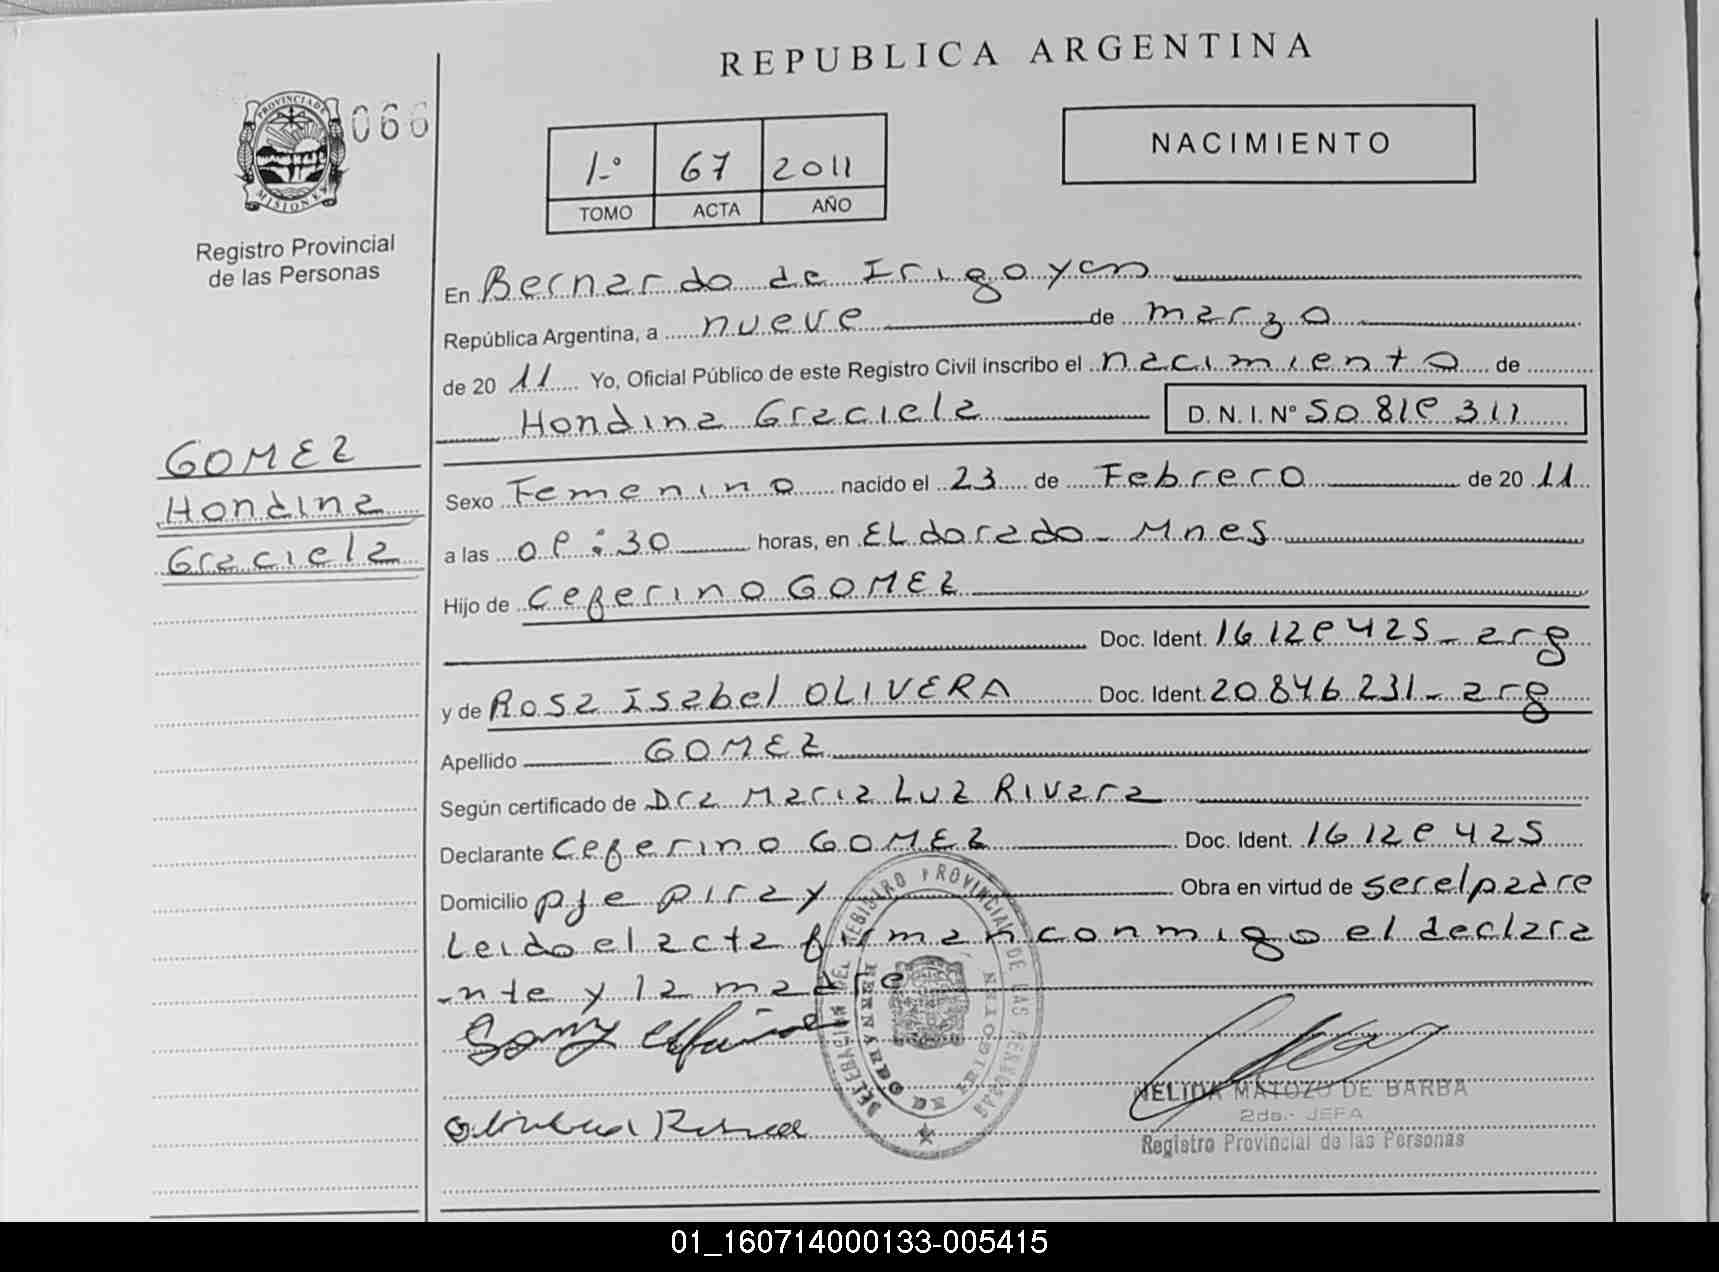 REPUBLICA ARGENTINA
PROVINCIA DE MISIONES
066
NACIMIENTO
1.º 67 2011
TOMO ACTA AÑO
Registro Provincial
de las Personas
En Bernardo de Irigoyen
República Argentina, a nueve de marzo
de 20 11 Yo, Oficial Público de este Registro Civil inscribo el nacimiento de
Hondina Graciela D. N. I. Nº 50.819.311
GOMEZ
Hondina
Graciela
Sexo Femenino nacido el 23 de Febrero de 20 11
a las 09:30 horas, en ELdorado - Mnes
Hijo de Ceferino GOMEZ
Doc. Ident. 16.129.425 - arg
y de Rosa Isabel OLIVERA Doc. Ident. 20.846.231 - arg
Apellido GOMEZ
Según certificado de Dra Maria Luz Rivara
Declarante Ceferino GOMEZ Doc. Ident. 16.129.425
Domicilio pje piray Obra en virtud de ser el padre
Leido el acta firman conmigo el declara
-nte y la madre
DELEGACION DEL REGISTRO PROVINCIAL DE LAS PERSONAS
BERNARDO DE IRIGOYEN
NELIDA MATOZO DE BARBA
2da.- JEFA
Registro Provincial de las Personas
01_160714000133-005415